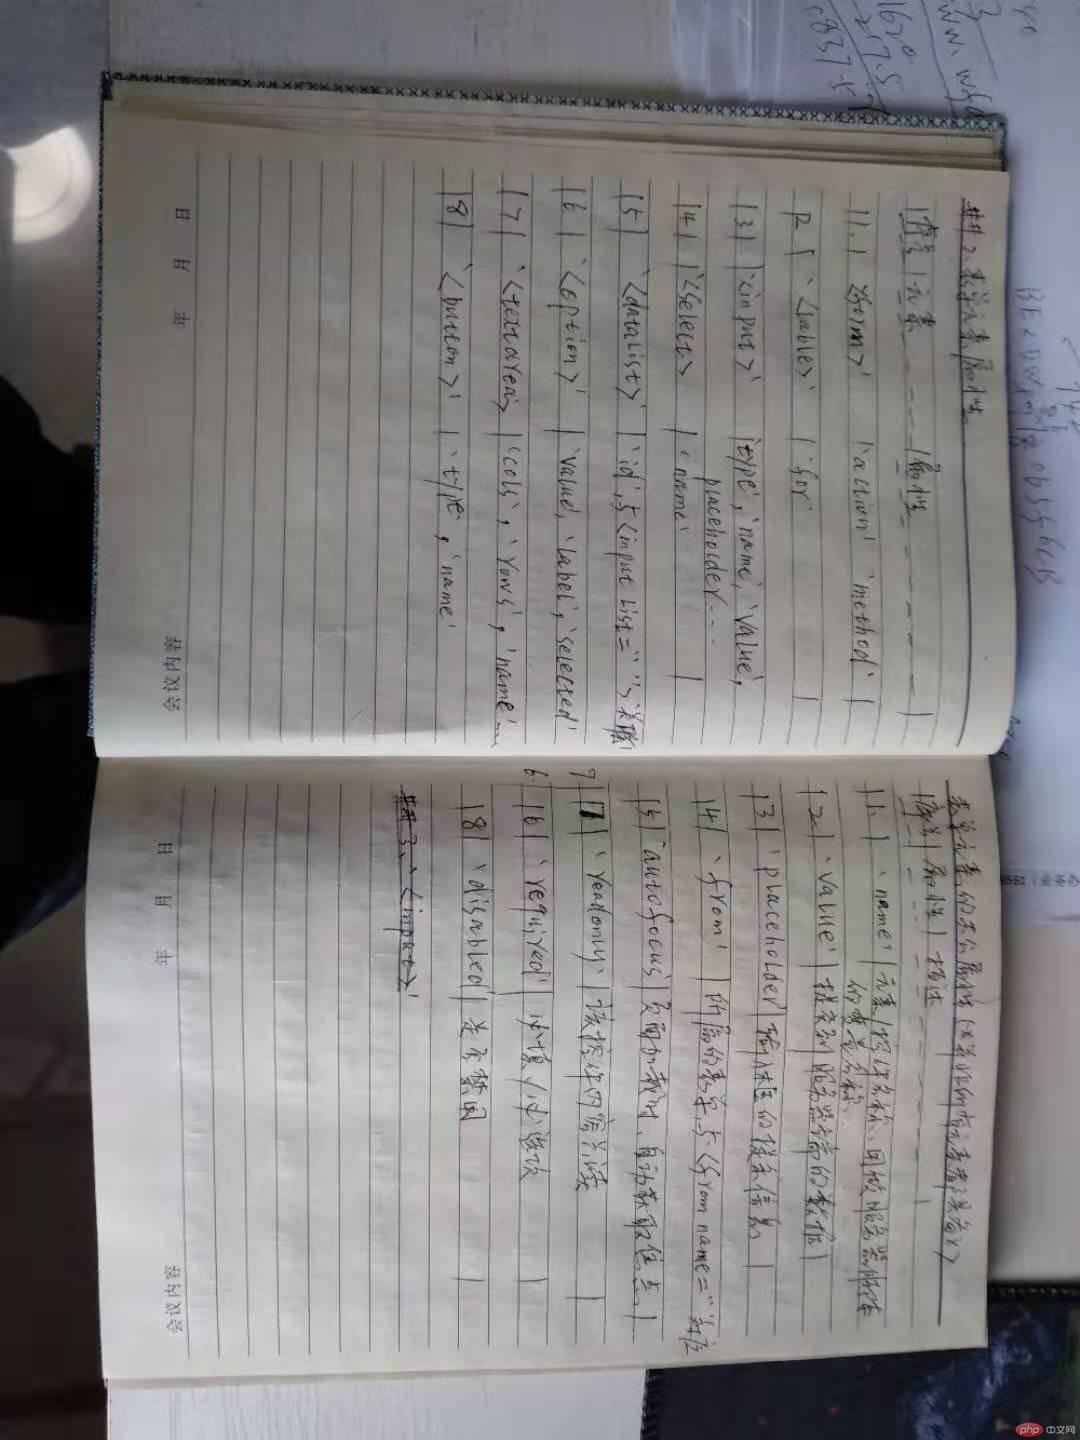 ## 2、表单元素属性
|序号|元素 --- |属性 ------|
|1.| <form>` |`action` `method` |
|2 | `<lable>` | `for` |
|3| |`<input>` |type`, `name`, `value`,
placeholder... |
|4| |`<select> | `name` |
|5| `<datalist>` |`id`,与<input list="">关联
|6| `<option>` | `value, `label`, `selected`
|7| `<textarea> |`cols`, `rows`, `name`...
|8| `<button>` | `type`, `name`
年 月 日
会议内容
表单元素的公共属性
|序号| 属性 | 描述
|1.| `name` | 元素/控件名称、同做服务器脚本
的变量名称.
|2| `value` | 提交到服务器端的数据|
|3| `placeholder| 输入框的提示信息 |
|4| `from` | 所属的表单,与<from name="">对应
|5| `autofocus`|页面加载时、自动获取焦点|
7 |7| `readonly`| 该控件内容只读 |
6. |6| `required`| 必填/必选项 |
|8| `disabled`| 是否禁用 |
## 3、`<input>`
年 月 日
会议内容
php 中文网